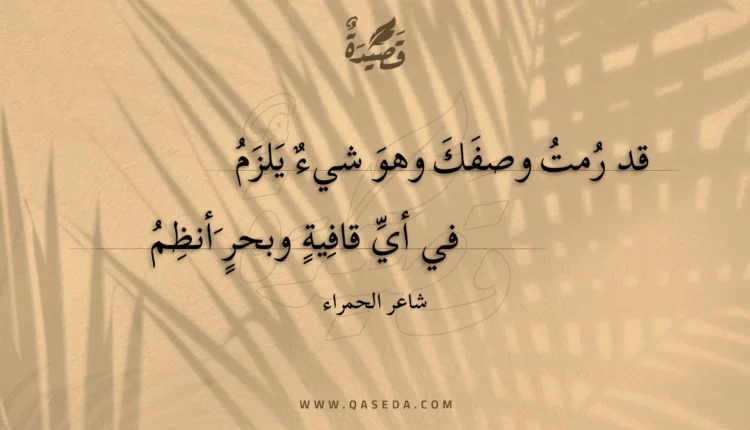 قَصِيدَةٌ
قد رُمتُ وصفَكَ وهوَ شيءٌ يَلزَمُ
في أيِّ قافِيةٍ وبحرٍ َأنظِمُ
شاعر الحمراء
WWW.QASEDA.COM